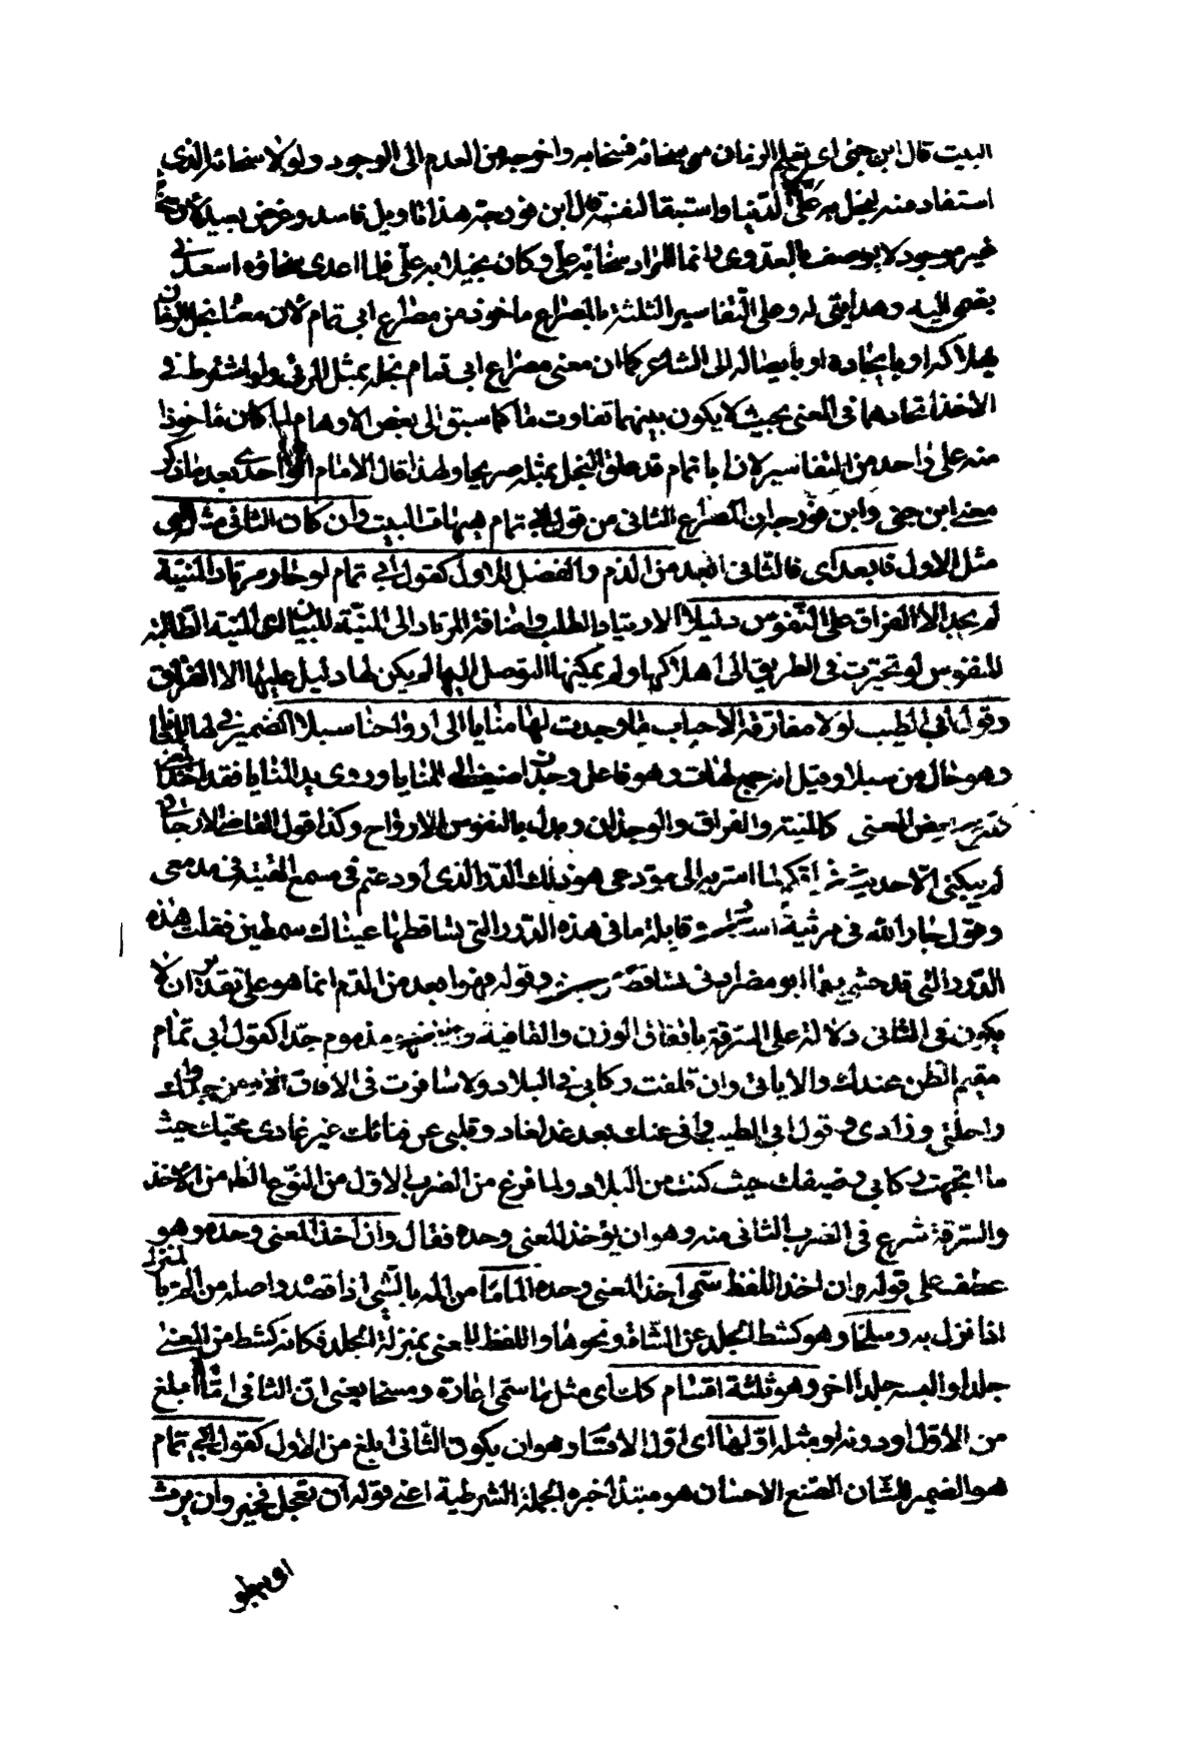 البيت قال ابن جني اى تعلم الزمان من سخائه فسخا به واخرجه من العدم الى الوجود ولولا سخائه الذى
استفاد منه لبخل به على الدنيا واستبقا لنفسه قال ابن فورجة هذا تاويل فاسد وغرض بعيد لان سخا
غير موجود لا يوصف بالعدوى وانما المراد سخا به على وكان بخيلا به على فلما اعدى سخاؤه اسعدنى
بضمى اليه وهدايتى له وعلى التفاسير الثلثة فالمصراع ماخوذ من مصراع ابى تمام لان معنا بخل الزمان
بهلاكه او بايجاده او بايصاله الى الشاعر كما ان معنى مصراع ابى تمام بخله بمثل المرثى ولو اشترط فى
الاخذ اتحادهما فى المعنى بحيث لا يكون بينهما تفاوت ما كما سبق الى بعض الاوهام لما كان ماخوذا
منه على واحد من التفاسير لان ابا تمام قد علق البخل بمثله صريحا ولهذا قال الامام الواحدى بعد ما ذكر
معنى ابن جنى وابن فورجة ان المصراع الثانى من قول ابى تمام هيهات البيت وان كان الثانى مثله اى
مثل الاول فابعد اى فالثانى ابعد من الذم والفضل للاول كقول ابى تمام لو حار مرتاد المنية
لم يجد الا الفراق على النفوس دليلا الارتياد الطلب واضافة المرتاد الى المنية للبيان اى المنية الطالبة
للنفوس لو تحيرت فى الطريق الى اهلاكها ولم يمكنها التوصل اليها لم يكن لها دليل عليها الا الفراق
وقول ابى الطيب لولا مفارقة الاحباب ما وجدت لها منايا الى ارواحنا سبلا الضمير فى لها للمنايا
وهو حال من سبلا وقيل انه جمع لهات وهو فاعل وجدت اضيف الى المنايا وروى يد المنايا فقد اخذ
بعض المعنى كالمنية والفراق والوجدان وبدل بالنفوس الارواح وكذا قول القاضى الارجانى
لم يبكنى الا حديث فراقكم لما اسر به الى مودعى هو ذلك الدر الذى اودعتم فى مسمعى القيته فى مدمعى
وقول جار الله فى مرثية استاذه وقايلة ما هذه الدرر التى تساقطها عيناك سمطين فقلت هذه
الدرر التى قد حشى بها ابو مضر اذنى تساقط وقوله فهو ابعد من الذم انما هو على تقدير ان لا
يكون فى الثانى دلالة على السرقة باتفاق الوزن والقافية مذموم جدا كقول ابى تمام
مقيم الظن عندك والامانى وان قلقت ركابى فى البلاد ولا سافرت فى الافاق الا ومن جدواك
راحلتى وزادى وقول ابى الطيب وانى عنك بعد غد لغاد وقلبى عن فنائك غير غادى محبك حيث
ما اتجهت ركابى وضيفك حيث كنت من البلاد ولما فرغ من الضرب الاول من النوع الظاهر من الاخذ
والسرقة شرع فى الضرب الثانى منه وهو ان يؤخذ المعنى وحده فقال وان اخذ المعنى وحده وهو
عطف على قوله وان اخذ اللفظ سمى اخذ المعنى وحده الماما من الم بالشى اذا قصد واصله من الم بالمنزل
اذا نزل به وسلخا وهو كشط الجلد عن الشاة ونحوها واللفظ للمعنى بمنزلة الجلد فكانه كشط من المعنى
جلدا والبسه جلدا اخر وهو ثلثة اقسام كذلك اى مثل ما سمى اغارة ومسخا يعنى ان الثانى اما ابلغ
من الاول او دونه او مثله اولها اى اول الاقسام وهو ان يكون الثانى ابلغ من الاول كقول ابى تمام
هو الضمير للشان الصنع الاحسان هو مبتدا خبره الجملة الشرطية اعنى قوله ان تعجل فخير وان يرث